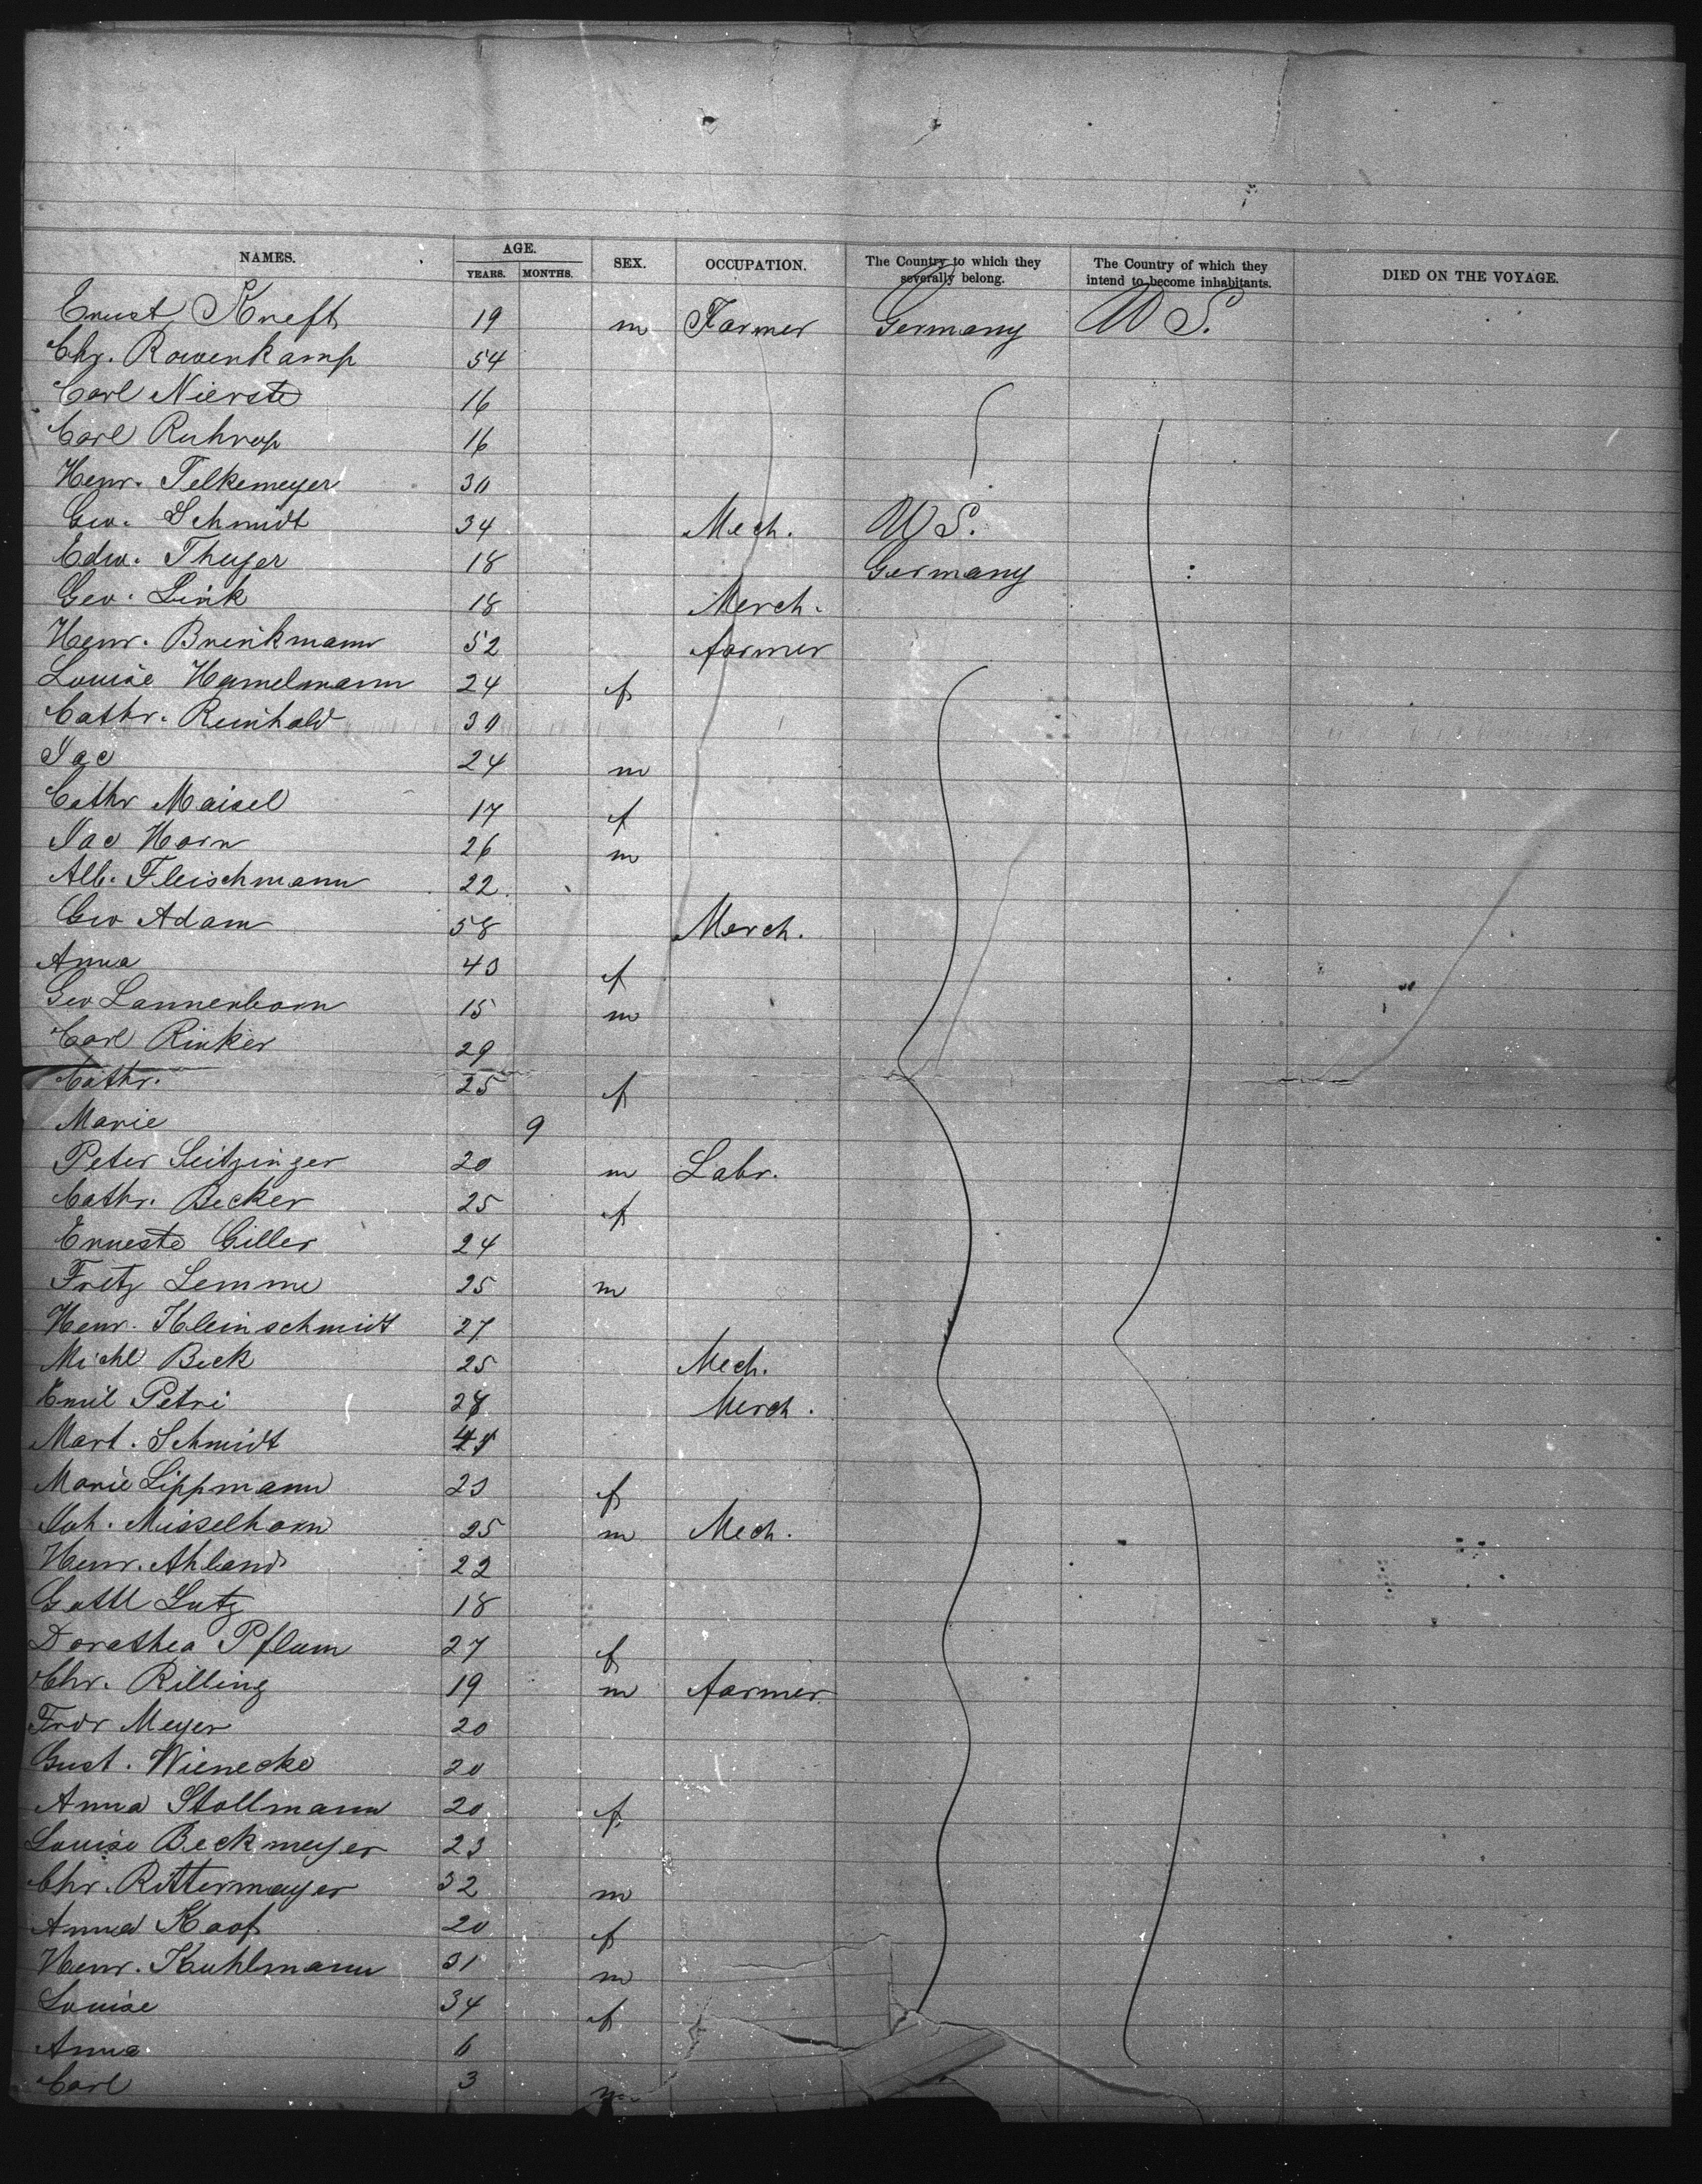 NAMES. AGE. YEARS. MONTHS. SEX. OCCUPATION. The Country to which they severally belong. The Country of which they intend to become inhabitants. DIED ON THE VOYAGE.
Ernst Kreft 19 m Farmer Germany U S.
Chr. Rowenkamp 54
Carl Nierste 16
Carl Ruhrop 16
Henr. Telkemeyer 30
Geo. Schmidt 34 Mech. U S.
Edw. Theyer 18 Germany
Geo. Link 18 Merch.
Henr. Brinkmann 52 farmer
Louise Hamelmann 24 f
Cathr. Reinhold 30
Jac 24 m
Cathr Maisel 17 f
Jac Horn 26 m
Alb. Fleischmann 22
Geo Adam 58 Merch.
Anna 40 f
Geo Lannenborn 15 m
Carl Rinker 29
Cathr. 25 f
Marie 9
Peter Seitzinger 20 m Labr.
Cathr. Becker 25 f
Erneste Giller 24
Fritz Lemme 25 m
Henr. Kleinschmidt 27
Michl Beck 25 Mech.
Emil Petri 28 Merch.
Mart. Schmidt
Marie Lippmann 23 f
Joh. Misselhorn 25 m Mech.
Henr. Ahland 22
Gottl Lutz 18
Dorathea Pflum 27 f
Chr. Rilling 19 m farmer
Frdr Meyer 20
Gust. Wienecke 20
Anna Stollmann 20 f
Louise Beckmeyer 23
Chr. Rittermayer 32 m
Anna Koof 20 f
Henr. Kuhlmann 31 m
Louise 34 f
Anna 6
Carl 3 m